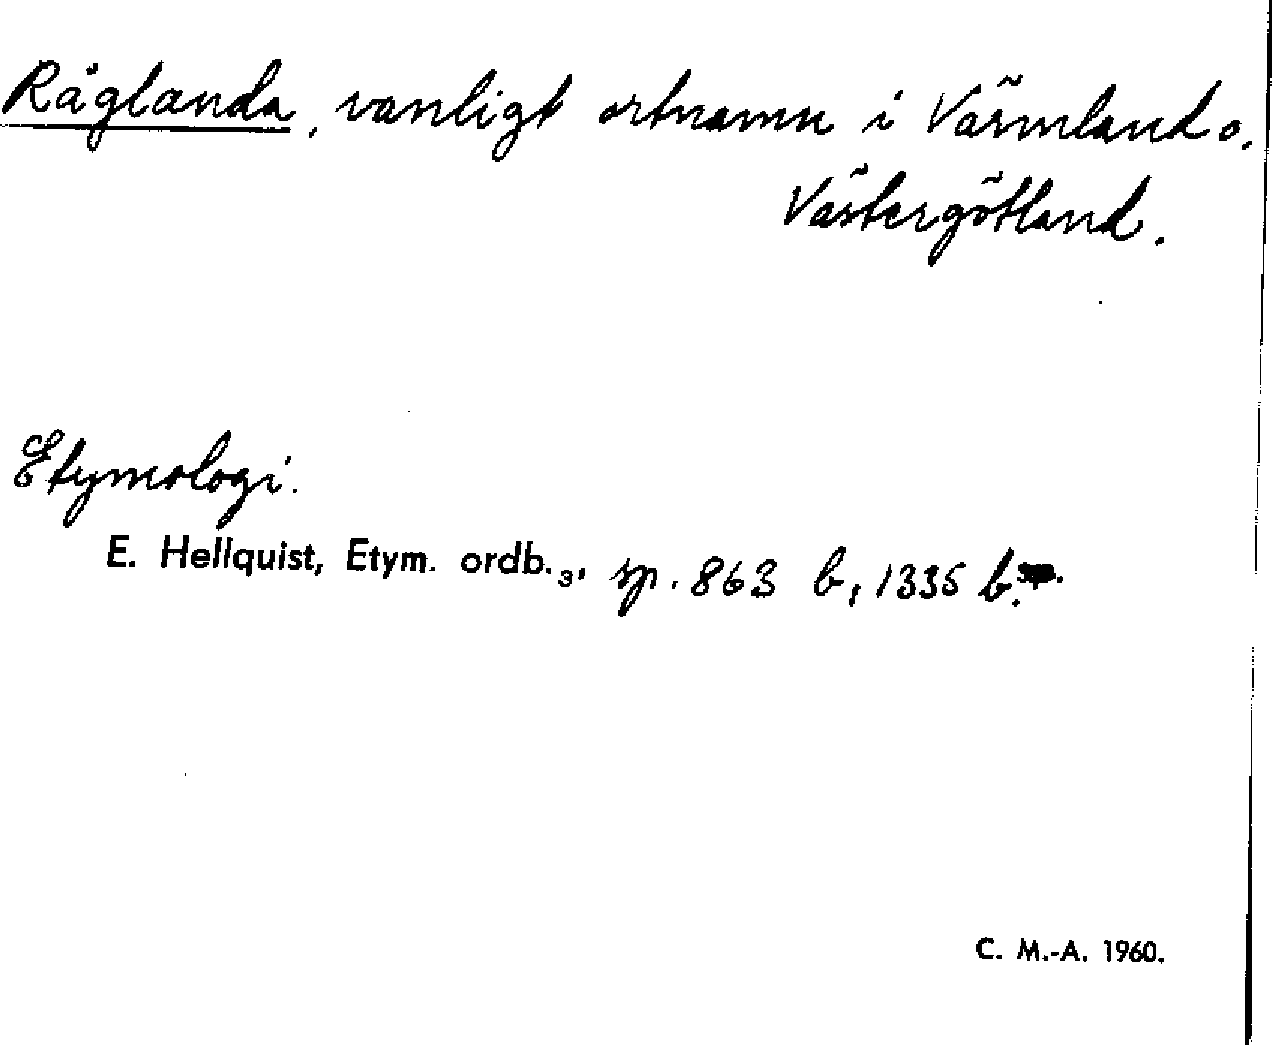 Råglanda, vanligt ortnamn i Värmland o.
Västergötland.
Etymologi.
E. Hellquist, Etym. ordb.₃, sp. 863 b, 1335 b.
C. M.-A. 1960.